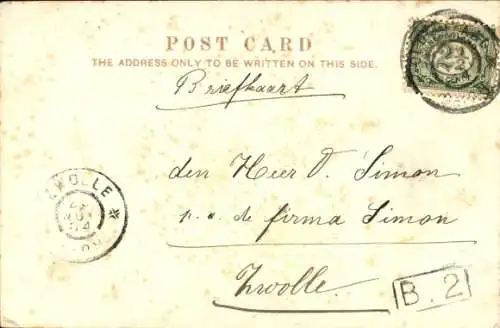 POST CARD
THE ADDRESS ONLY TO BE WRITTEN ON THIS SIDE.
Briefkaart
2½
den Heer V. Simon
p.a. de firma Simon
Zwolle
ZWOLLE
B. 2